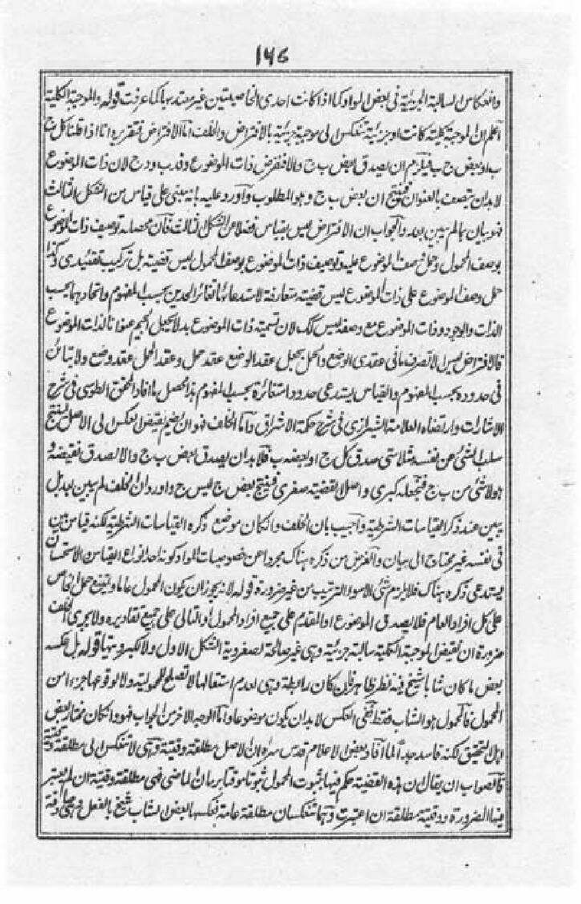 ۱۷۵
وانعكاس السالبة الجزئية فى بعض المواد كما اذا كانت احدى الخاصيتين غير معتد بها كما عرفت قوله والموجبة الكلية
اعلم ان الموجبة كلية كانت او جزئية تنعكس الى موجبة جزئية بالافتراض والخلف اما الافتراض فتقريره انا اذا قلنا كل ج
ب او بعض ج ب فيلزم ان يصدق بعض ب ج والا فنفرض ذات الموضوع د فد ب و د ج لان ذات الموضوع
لا بد ان يتصف بالعنوان فينتج ان بعض ب ج وهو المطلوب واورد عليه بانه يبتنى على قياس من الشكل الثالث
فهو بيان بما لم يبين بعد والجواب ان الافتراض ليس بقياس فضلا عن الشكل الثالث فان محصله توصيف ذات الموضوع
بوصف المحمول وحمل وصف الموضوع عليه وتوصيف ذات الموضوع بوصف المحمول ليس قضية بل تركيب تقييدى وكذا
حمل وصف الموضوع على ذات الموضوع ليس قضية متعارفة لاستدعائها تغاير الحدين بحسب المفهوم واتحادهما بحسب
الذات والوجود وذات الموضوع مع وصفه ليس كذلك لان تسمية ذات الموضوع بد لا يجعل الجيم عنوانا لذات الموضوع
فالافتراض ليس الا تصرف ما فى عقدى الوضع والحمل بجعل عقد الوضع عقد حمل وعقد الحمل عقد وضع ولا تباين
فى حدوده بحسب المفهوم والقياس يستدعى حدودا متغائرة بحسب المفهوم هذا محصل ما افاد المحقق الطوسى فى شرح
الاشارات وارتضاه العلامة الشيرازى فى شرح حكمة الاشراق واما الخلف فهو ان يضم نقيض العكس الى الاصل لينتج
سلب الشئ عن نفسه مثلا متى صدق كل ج او بعضه ب فلا بد ان يصدق بعض ب ج والا لصدق نقيضه و
هو لا شئ من ب ج فنجعله كبرى واصل القضية صغرى فينتج بعض ج ليس ج واورد ان الخلف لم يبين بعد بل
يبين عند ذكر القياسات الشرطية واجيب بان الخلف وان كان موضع ذكره القياسات الشرطية لكنه قياس بين
فى نفسه غير محتاج الى بيان والغرض من ذكره هناك مجردا عن خصوصيات المواد كونه احد انواع القياس الاستحسان
يستدعى ذكره هناك فلا يلزم شئ الا سوء الترتيب من غير ضرورة قوله لانه يجوز ان يكون المحمول عاما ويمتنع حمل الخاص
على كل افراد العام فلا يصدق الموضوع او المقدم على جميع افراد المحمول او التالى على جميع تقاديره ولا يجرى الخلف
ضرورة ان نقيض الموجبة الكلية سالبة جزئية وهى غير صالحة لصغروية الشكل الاول ولا لكبرويتها قوله بل عكسه
بعض ما كان شابا شيخ فيه نظر ظاهر فان كان رابطة وهى لعدم استقلالها لا تصلح للمحمولية ولا لوقوعها جزءا من
المحمول فالمحمول هو الشاب فقط ففى العكس لا بد ان يكون موضوعا واما الوجه الآخر من الجواب فهو وان كان مختار بعض
اهل التحقيق لكنه فاسد جدا لما افاد بعض الاعلام قدس سره ان الاصل مطلقة وقتية وهى لا تنعكس الى مطلقة وقتية
فالصواب ان يقال ان هذه القضية حكم فيها بثبوت المحمول ثبوتا موقتا بزمان الماضى فهى مطلقة وقتية ان لم يعتبر
فيها الضرورة ووقتية مطلقة ان اعتبرت وهما تنعكسان مطلقة عامة فعكسها بعض الشاب شيخ بالفعل وهى صادقة